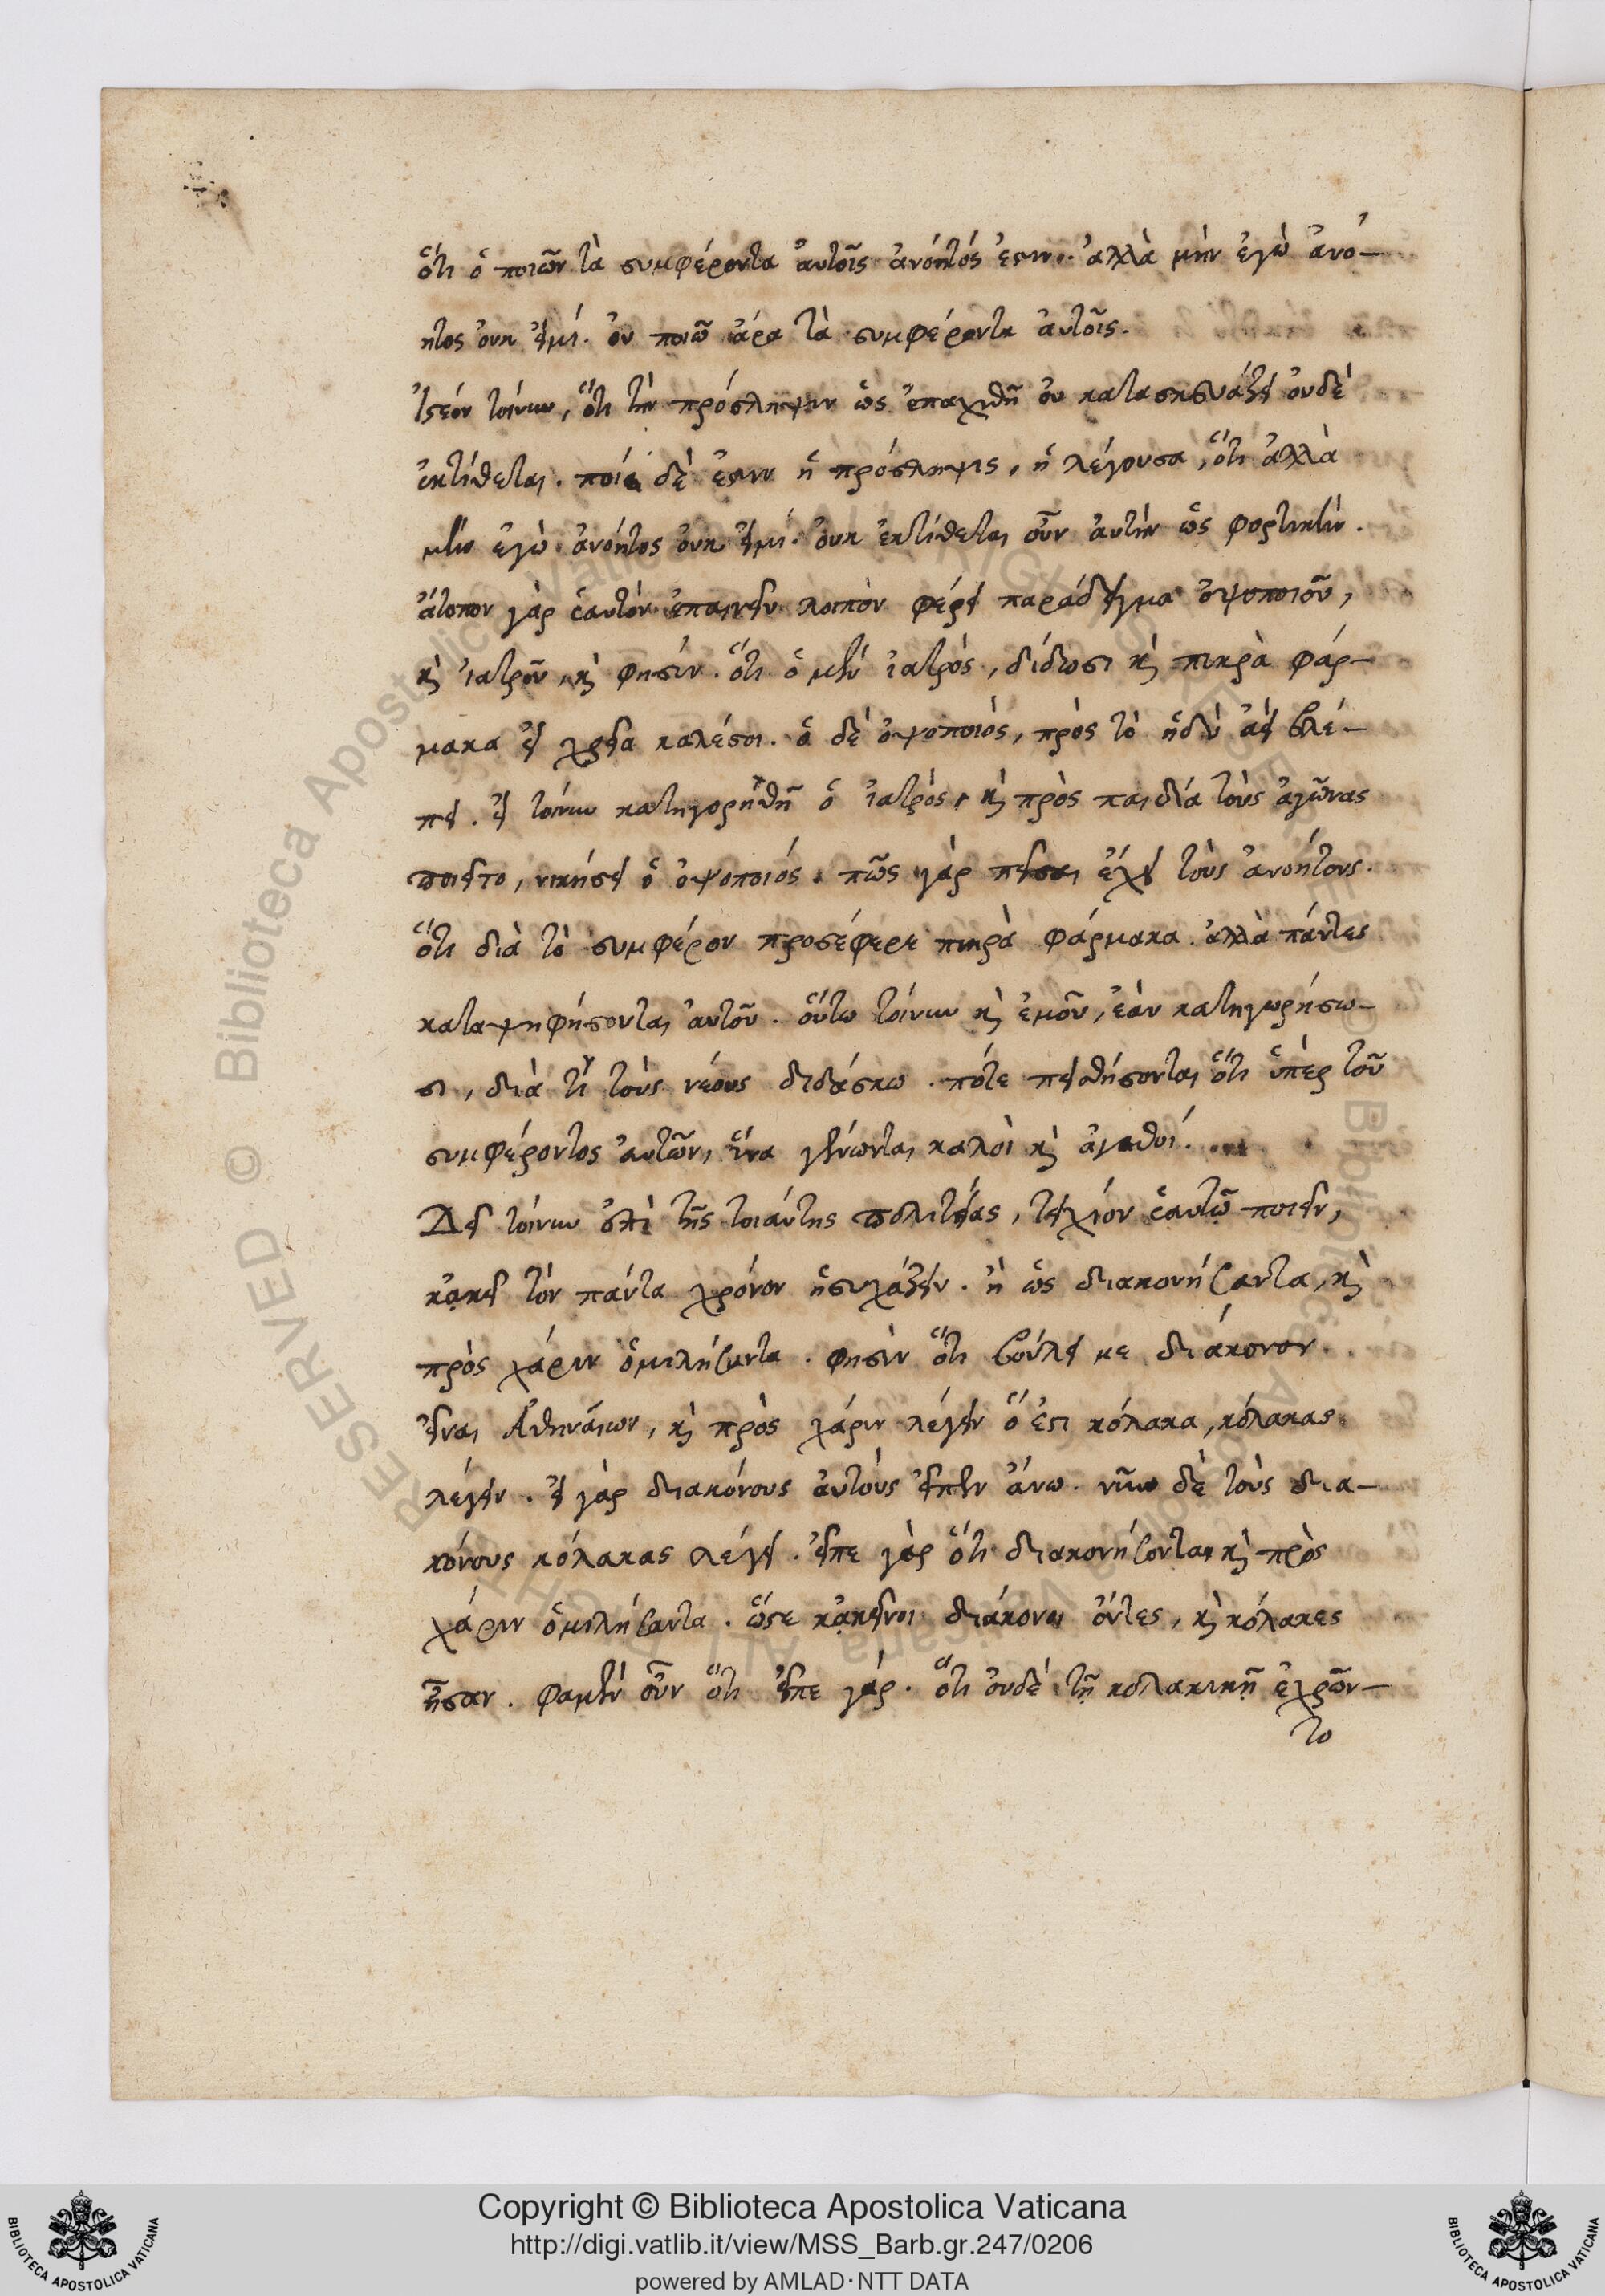 ὅτι ὁ ποιῶν τὰ συμφέροντα αὐτοῖς ἀνόητός ἐστιν. ἀλλὰ μὴν ἐγὼ ἀνό-
ητος οὐκ εἰμί. οὐ ποιῶ ἄρα τὰ συμφέροντα αὐτοῖς.
ἰστέον τοίνυν, ὅτι τὴν πρόσληψιν ὡς ἐπαχθῆ οὐ κατασκευάζει οὐδὲ
ἐκτίθεται. ποία δὲ ἐστιν ἡ πρόσληψις, ἡ λέγουσα, ὅτι ἀλλὰ
μὴν ἐγὼ ἀνόητος οὐκ εἰμί. οὐκ ἐκτίθεται οὖν αὐτὴν ὡς φορτικήν.
ἄτοπον γὰρ ἑαυτὸν ἐπαινεῖν λοιπὸν φέρει παράδειγμα ὀψοποιοῦ,
καὶ ἰατροῦ, καὶ φησίν. ὅτι ὁ μὲν ἰατρὸς, δίδωσι καὶ πικρὰ φάρ-
μακα εἰ χρεία καλέσοι. ὁ δὲ ὀψοποιὸς, πρὸς τὸ ἡδὺ ἀεὶ βλέ-
πει. εἰ τοίνυν κατηγορηθῆ ὁ ἰατρὸς, καὶ πρὸς παιδία τοὺς ἀγῶνας
ποιεῖτο, νικήσει ὁ ὀψοποιός. πῶς γὰρ πεῖσαι ἔχει τοὺς ἀνοήτους.
ὅτι διὰ τὸ συμφέρον προσέφερε πικρὰ φάρμακα. ἀλλὰ πάντες
καταψηφήσονται αὐτοῦ. οὕτω τοίνυν καὶ ἐμοῦ, ἐὰν κατηγωρήσω-
σι, διὰ τί τοὺς νέους διδάσκω. πότε πεισθήσονται ὅτι ὑπὲρ τοῦ
συμφέροντος αὐτῶν, ἵνα γένωνται καλοὶ καὶ ἀγαθοί.
Δεῖ τοίνυν ἐπὶ τῆς τοιαύτης πολιτείας, τειχίον ἑαυτῷ ποιεῖν,
κἀκεῖ τὸν πάντα χρόνον ἡσυχάζειν. ἢ ὡς διακονήσαντα, καὶ
πρὸς χάριν ὁμιλήσαντα. φησὶν ὅτι βούλει με διάκονον
εἶναι Ἀθηναίων, καὶ πρὸς χάριν λέγειν ὅ ἐστι κόλακα, κόλακας
λέγειν. εἰ γὰρ διακόνους αὐτούς εἶπεν ἄνω. νῦν δὲ τοὺς δια-
κόνους κόλακας λέγει. εἶπε γὰρ ὅτι διακονήσοντα καὶ πρὸς
χάριν ὁμιλήσαντα. ὥστε κἀκεῖνοι διάκονοι ὄντες, καὶ κόλακες
ἦσαν. φαμὲν οὖν ὅτι εἶπε γὰρ. ὅτι οὐδὲ τῇ κολακικῇ ἐχρῶν-
το
Copyright © Biblioteca Apostolica Vaticana
http://digi.vatlib.it/view/MSS_Barb.gr.247/0206
powered by AMLAD·NTT DATA